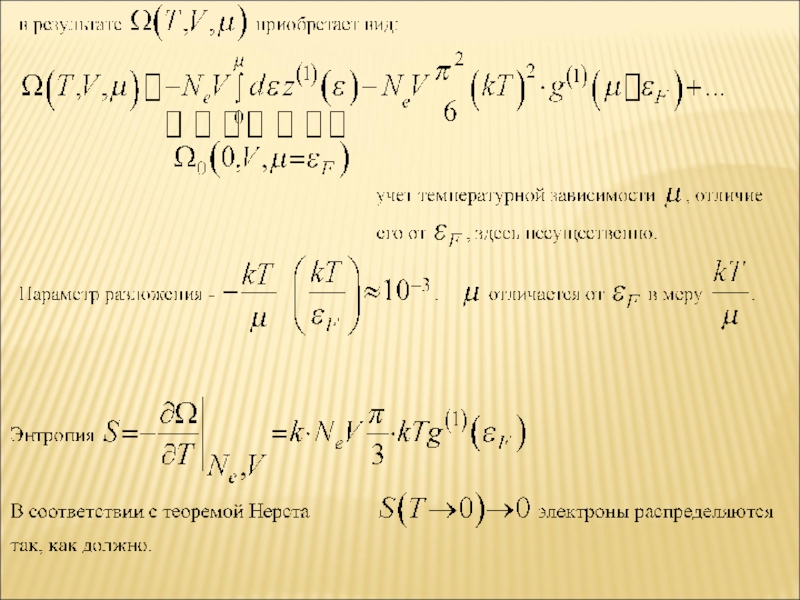 в результате Ω(T,V,μ) приобретает вид:
Ω(T,V,μ) □ −N_eV ∫_0^μ dεz^(1)(ε) − N_eV π^2/6 (kT)^2 · g^(1)(μ □ ε_F)+...
Ω_0(0,V,μ=ε_F)
учет температурной зависимости μ, отличие
его от ε_F, здесь несущественно.
Параметр разложения - −kT/μ (kT/ε_F) ≈10^−3. μ отличается от ε_F в меру kT/μ.
Энтропия S=−∂Ω/∂T|_N_e,V =k·N_eV π/3·kTg^(1)(ε_F)
В соответствии с теоремой Нерста S(T→0)→0 электроны распределяются
так, как должно.